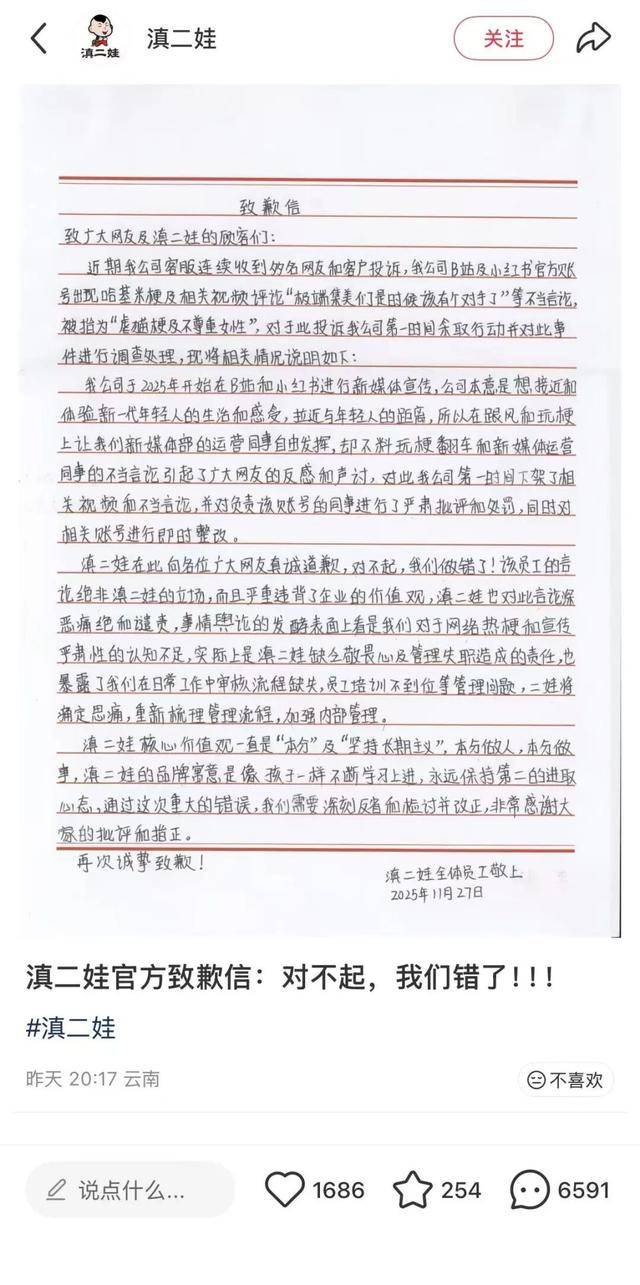 滇二娃
滇二娃
关注
致歉信
致广大网友及滇二娃的顾客们：
近期我公司客服连续收到多名网友和客户投诉，我公司B站及小红书官方账
号出现哈基米梗及相关视频评论“极端集美们是时候该有个对手了”等不当言论，
被指为“虐猫梗及不尊重女性”，对于此投诉我公司第一时间采取行动并对此事
件进行调查处理，现将相关情况说明如下：
我公司于2025年开始在B站和小红书进行新媒体宣传，公司本意是想接近和
体验新一代年轻人的生活和感受，拉近与年轻人的距离，所以在跟风和玩梗
上让我们新媒体部的运营同事自由发挥，却不料玩梗翻车和新媒体运营
同事的不当言论引起了广大网友的反感和声讨，对此我公司第一时间下架了相
关视频和不当言论，并对负责该账号的同事进行了严肃批评和处罚，同时对
相关账号进行即时整改。
滇二娃在此向各位广大网友真诚道歉，对不起，我们做错了！该员工的言
论绝非滇二娃的立场，而且严重违背了企业的价值观，滇二娃也对此言论深
恶痛绝和谴责，事情舆论的发酵表面上看是我们对于网络热梗和宣传
严肃性的认知不足，实际上是滇二娃缺乏敬畏心及管理失职造成的责任，也
暴露了我们在日常工作中审核流程缺失，员工培训不到位等管理问题，二娃将
痛定思痛，重新梳理管理流程，加强内部管理。
滇二娃核心价值观一直是“本分”及“坚持长期主义”，本分做人，本分做
事，滇二娃的品牌寓意是像孩子一样不断学习上进，永远保持第二的进取
心态，通过这次重大的错误，我们需要深刻反省和检讨并改正，非常感谢大
家的批评和指正。
再次诚挚致歉！
滇二娃全体员工敬上
2025年11月27日
滇二娃官方致歉信：对不起，我们错了！！！
#滇二娃
昨天 20:17 云南
不喜欢
说点什么...
1686
254
6591